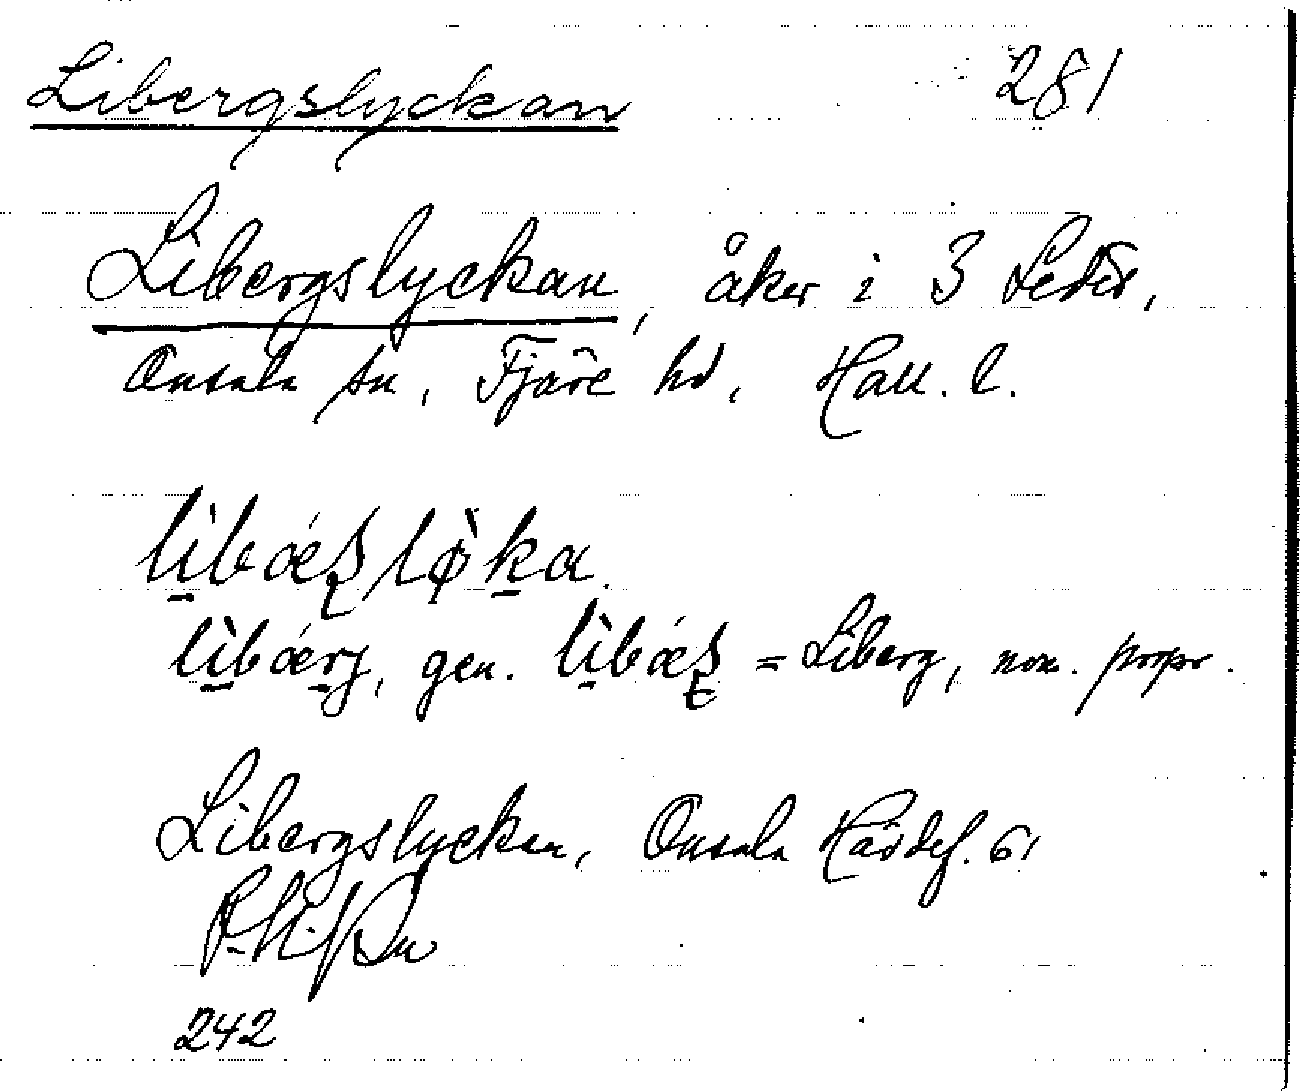 Libergslyckan 281
Libergslyckan, åker i 3
Onsala sn, Fjäre hd, Hall. l.
lìbǽslø̀ka.
lìbǽrj, gen. lìbǽs = Liberg, nom. propr.
Libergslyckan, Onsala 61
242